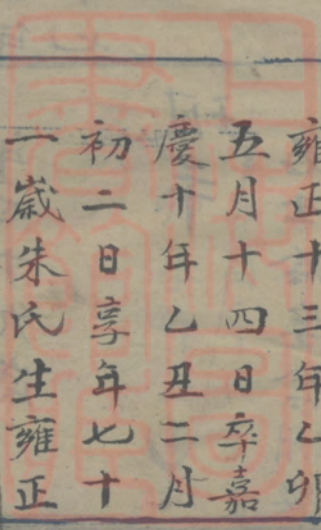 雍正十三年乙卯
五月十四日卒嘉
慶十年乙丑二月
初二日享年七十
一歲朱氏生雍正